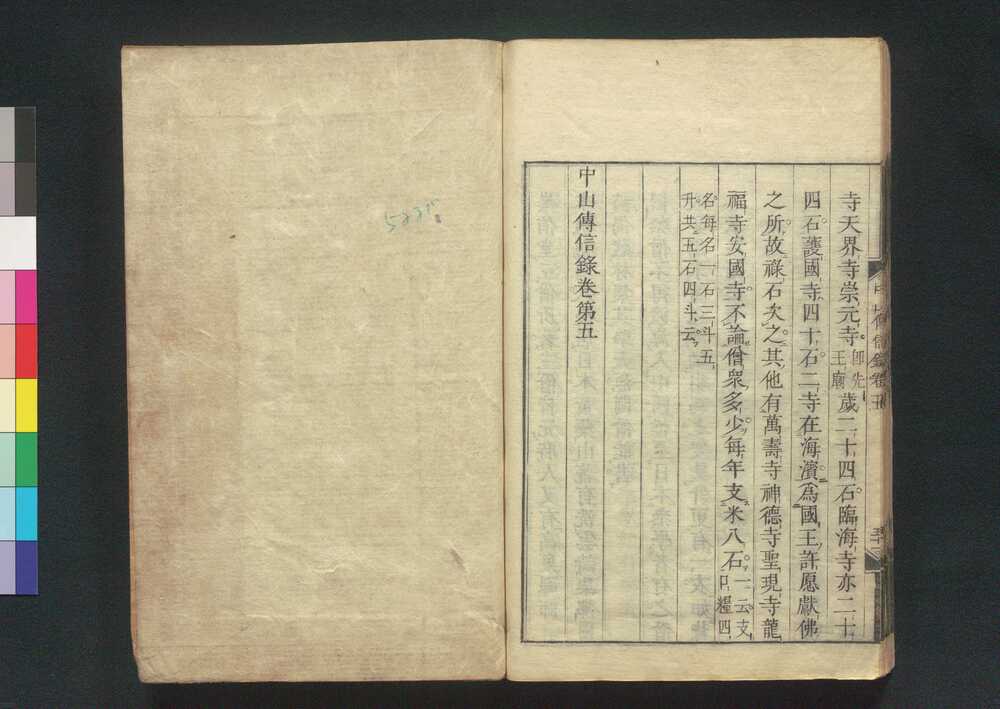 寺天界寺崇元寺即先王廟歲二十四石臨海寺亦二十
四石護國寺四十石二寺在海濱爲國王許愿獻佛
之所故祿石次之其他有萬壽寺神德寺聖現寺龍
福寺安國寺不論僧衆多少每年支米八石一云支口糧四
名每名一石三斗五
升共五石四斗云
中山傳信錄卷第五